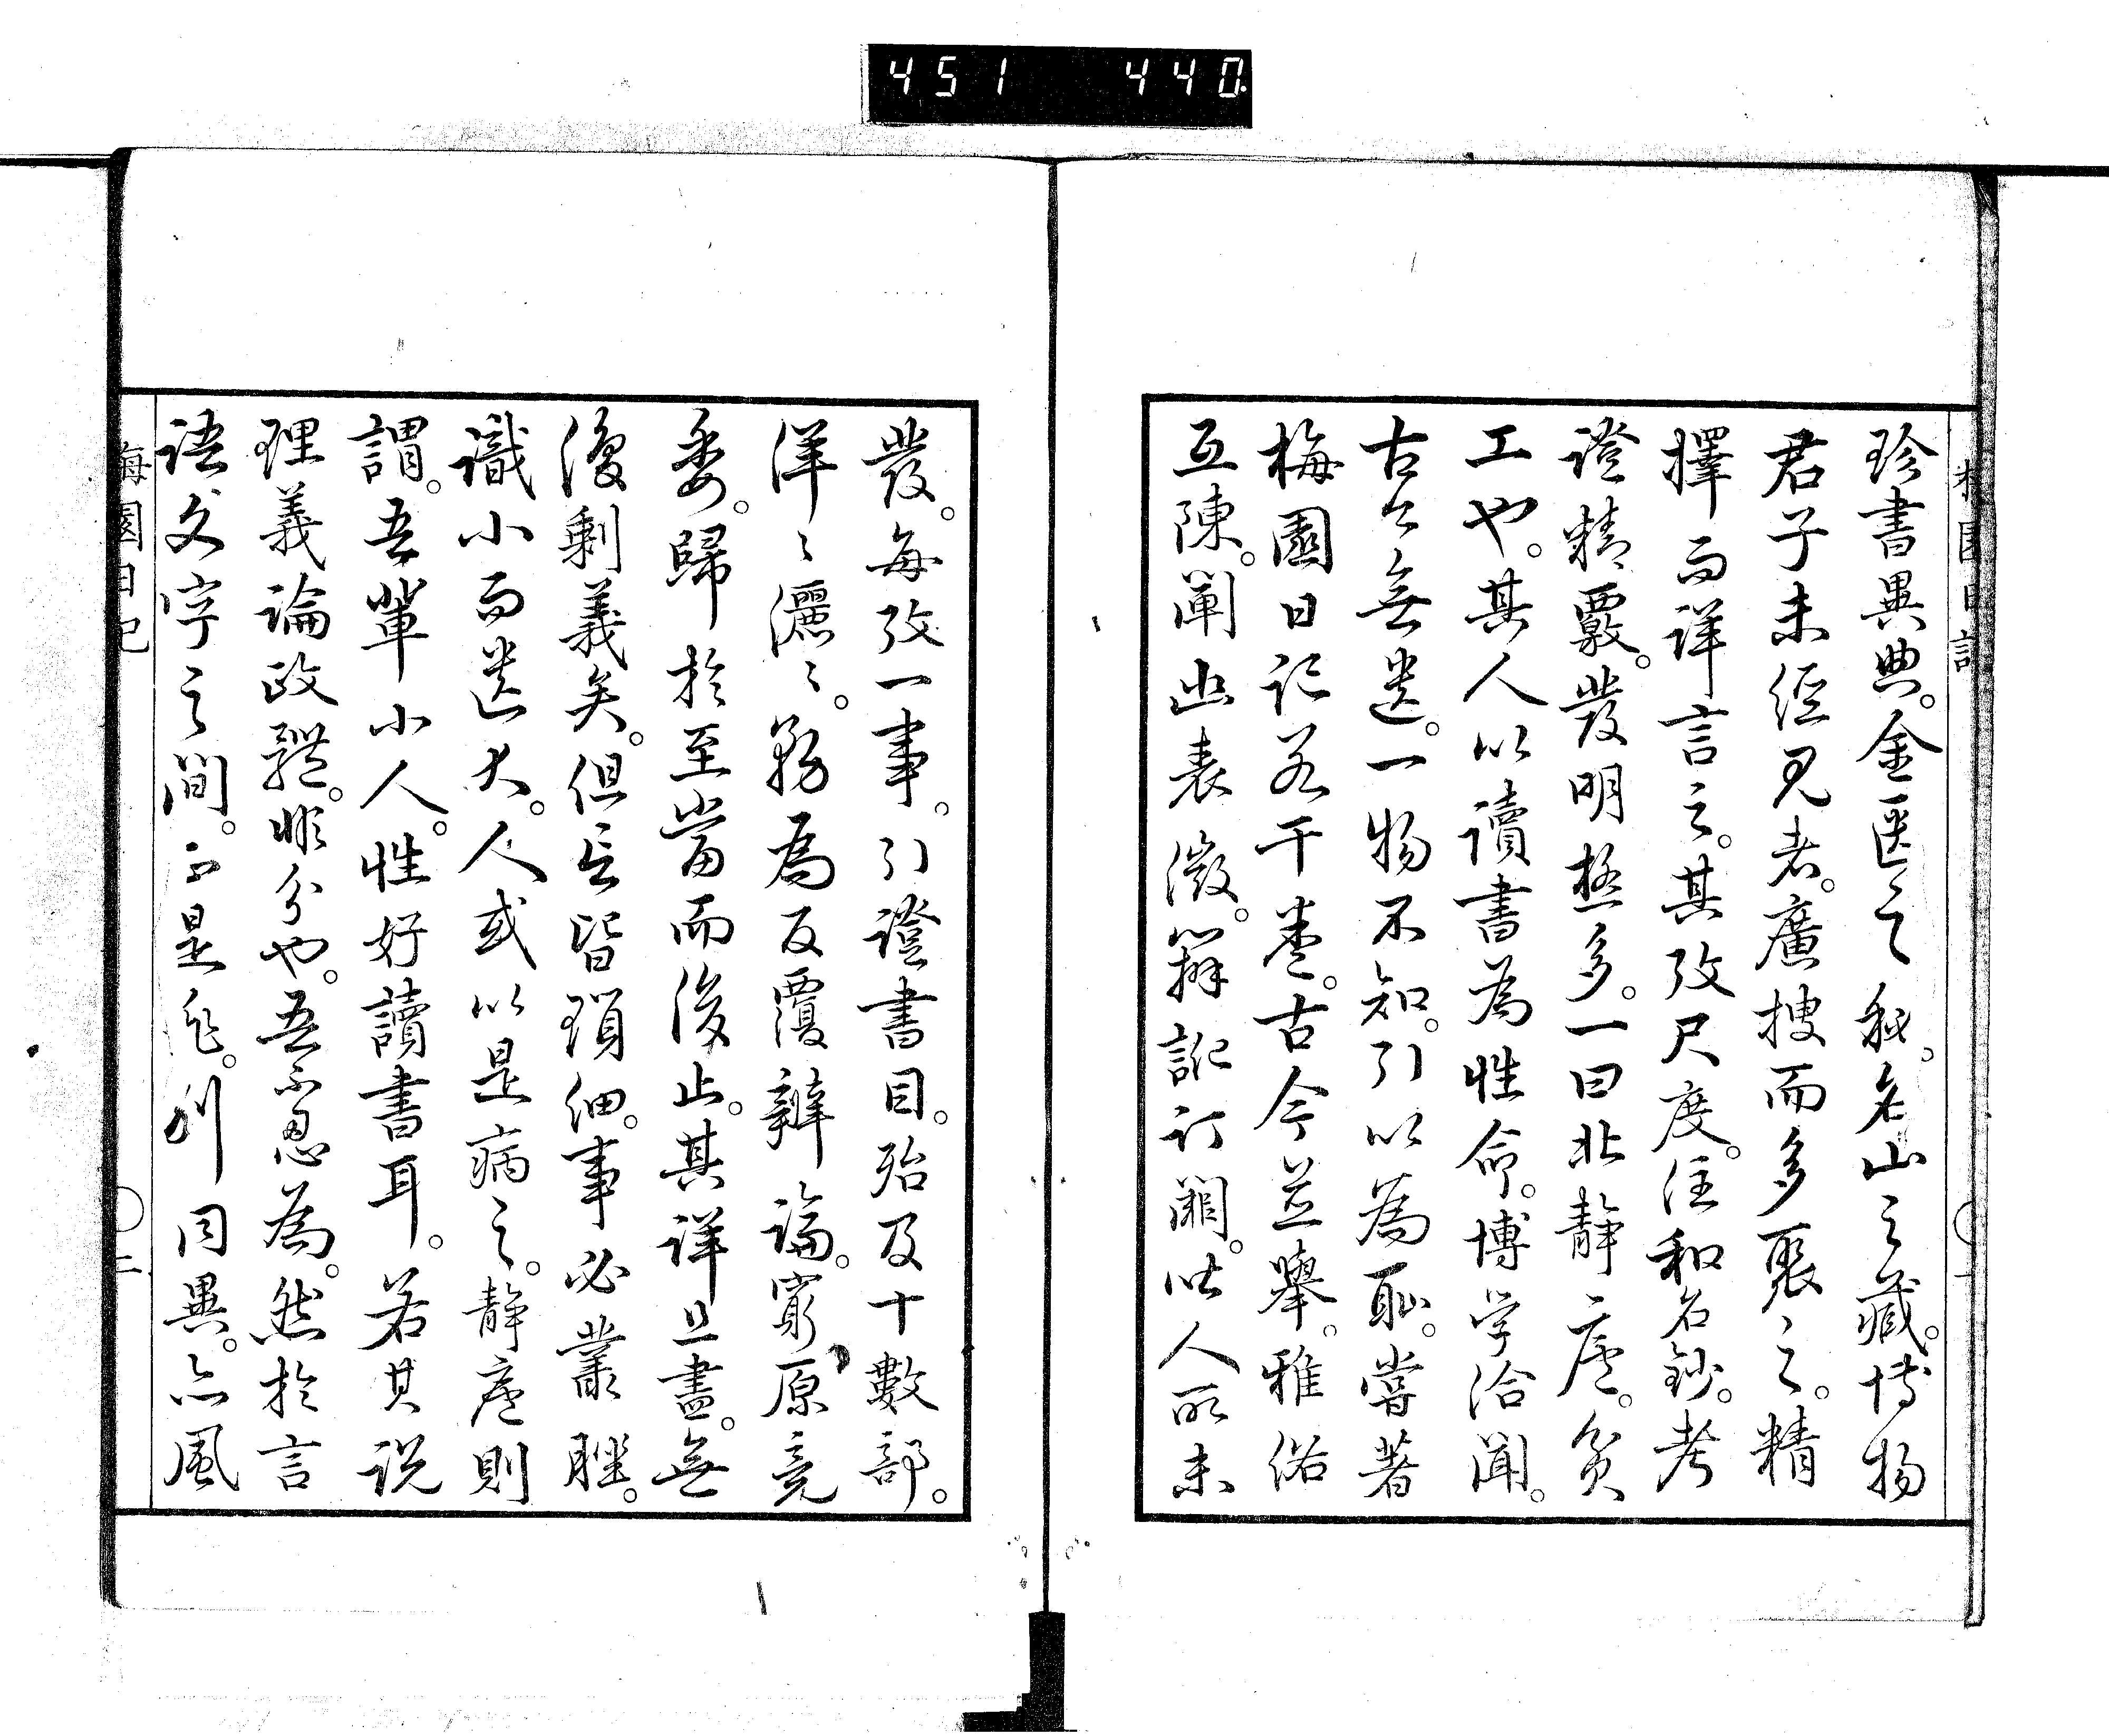 451 440
珍書異典。金匱之秘。名山之藏。博物
君子未經見者。廣搜而多聚之。精
擇而詳言之。其攷尺度。注和名鈔。考
證精覈。發明極多。一曰北靜廬。貧
工也。其人以讀書為性命。博学洽聞。
古今無遺。一物不知。引以為恥。嘗著
梅園日記若干卷。古今並舉。雅俗
互陳。闡幽表微。辨訛訂漏。此人所未
發。每攷一事。引證書目。殆及十數部。
洋々灑々。務為反覆辯論。窮原竟
委。歸於至當而後止。其詳且盡。無
復剩義矣。但言皆瑣細。事必叢脞。
識小而遺大。人或以是病之。靜廬則
謂。吾輩小人。性好讀書耳。若其說
理義論政體。非分也。吾不忍為。然於言
語文字之間。正是非。別同異。亦風
梅園日記
二